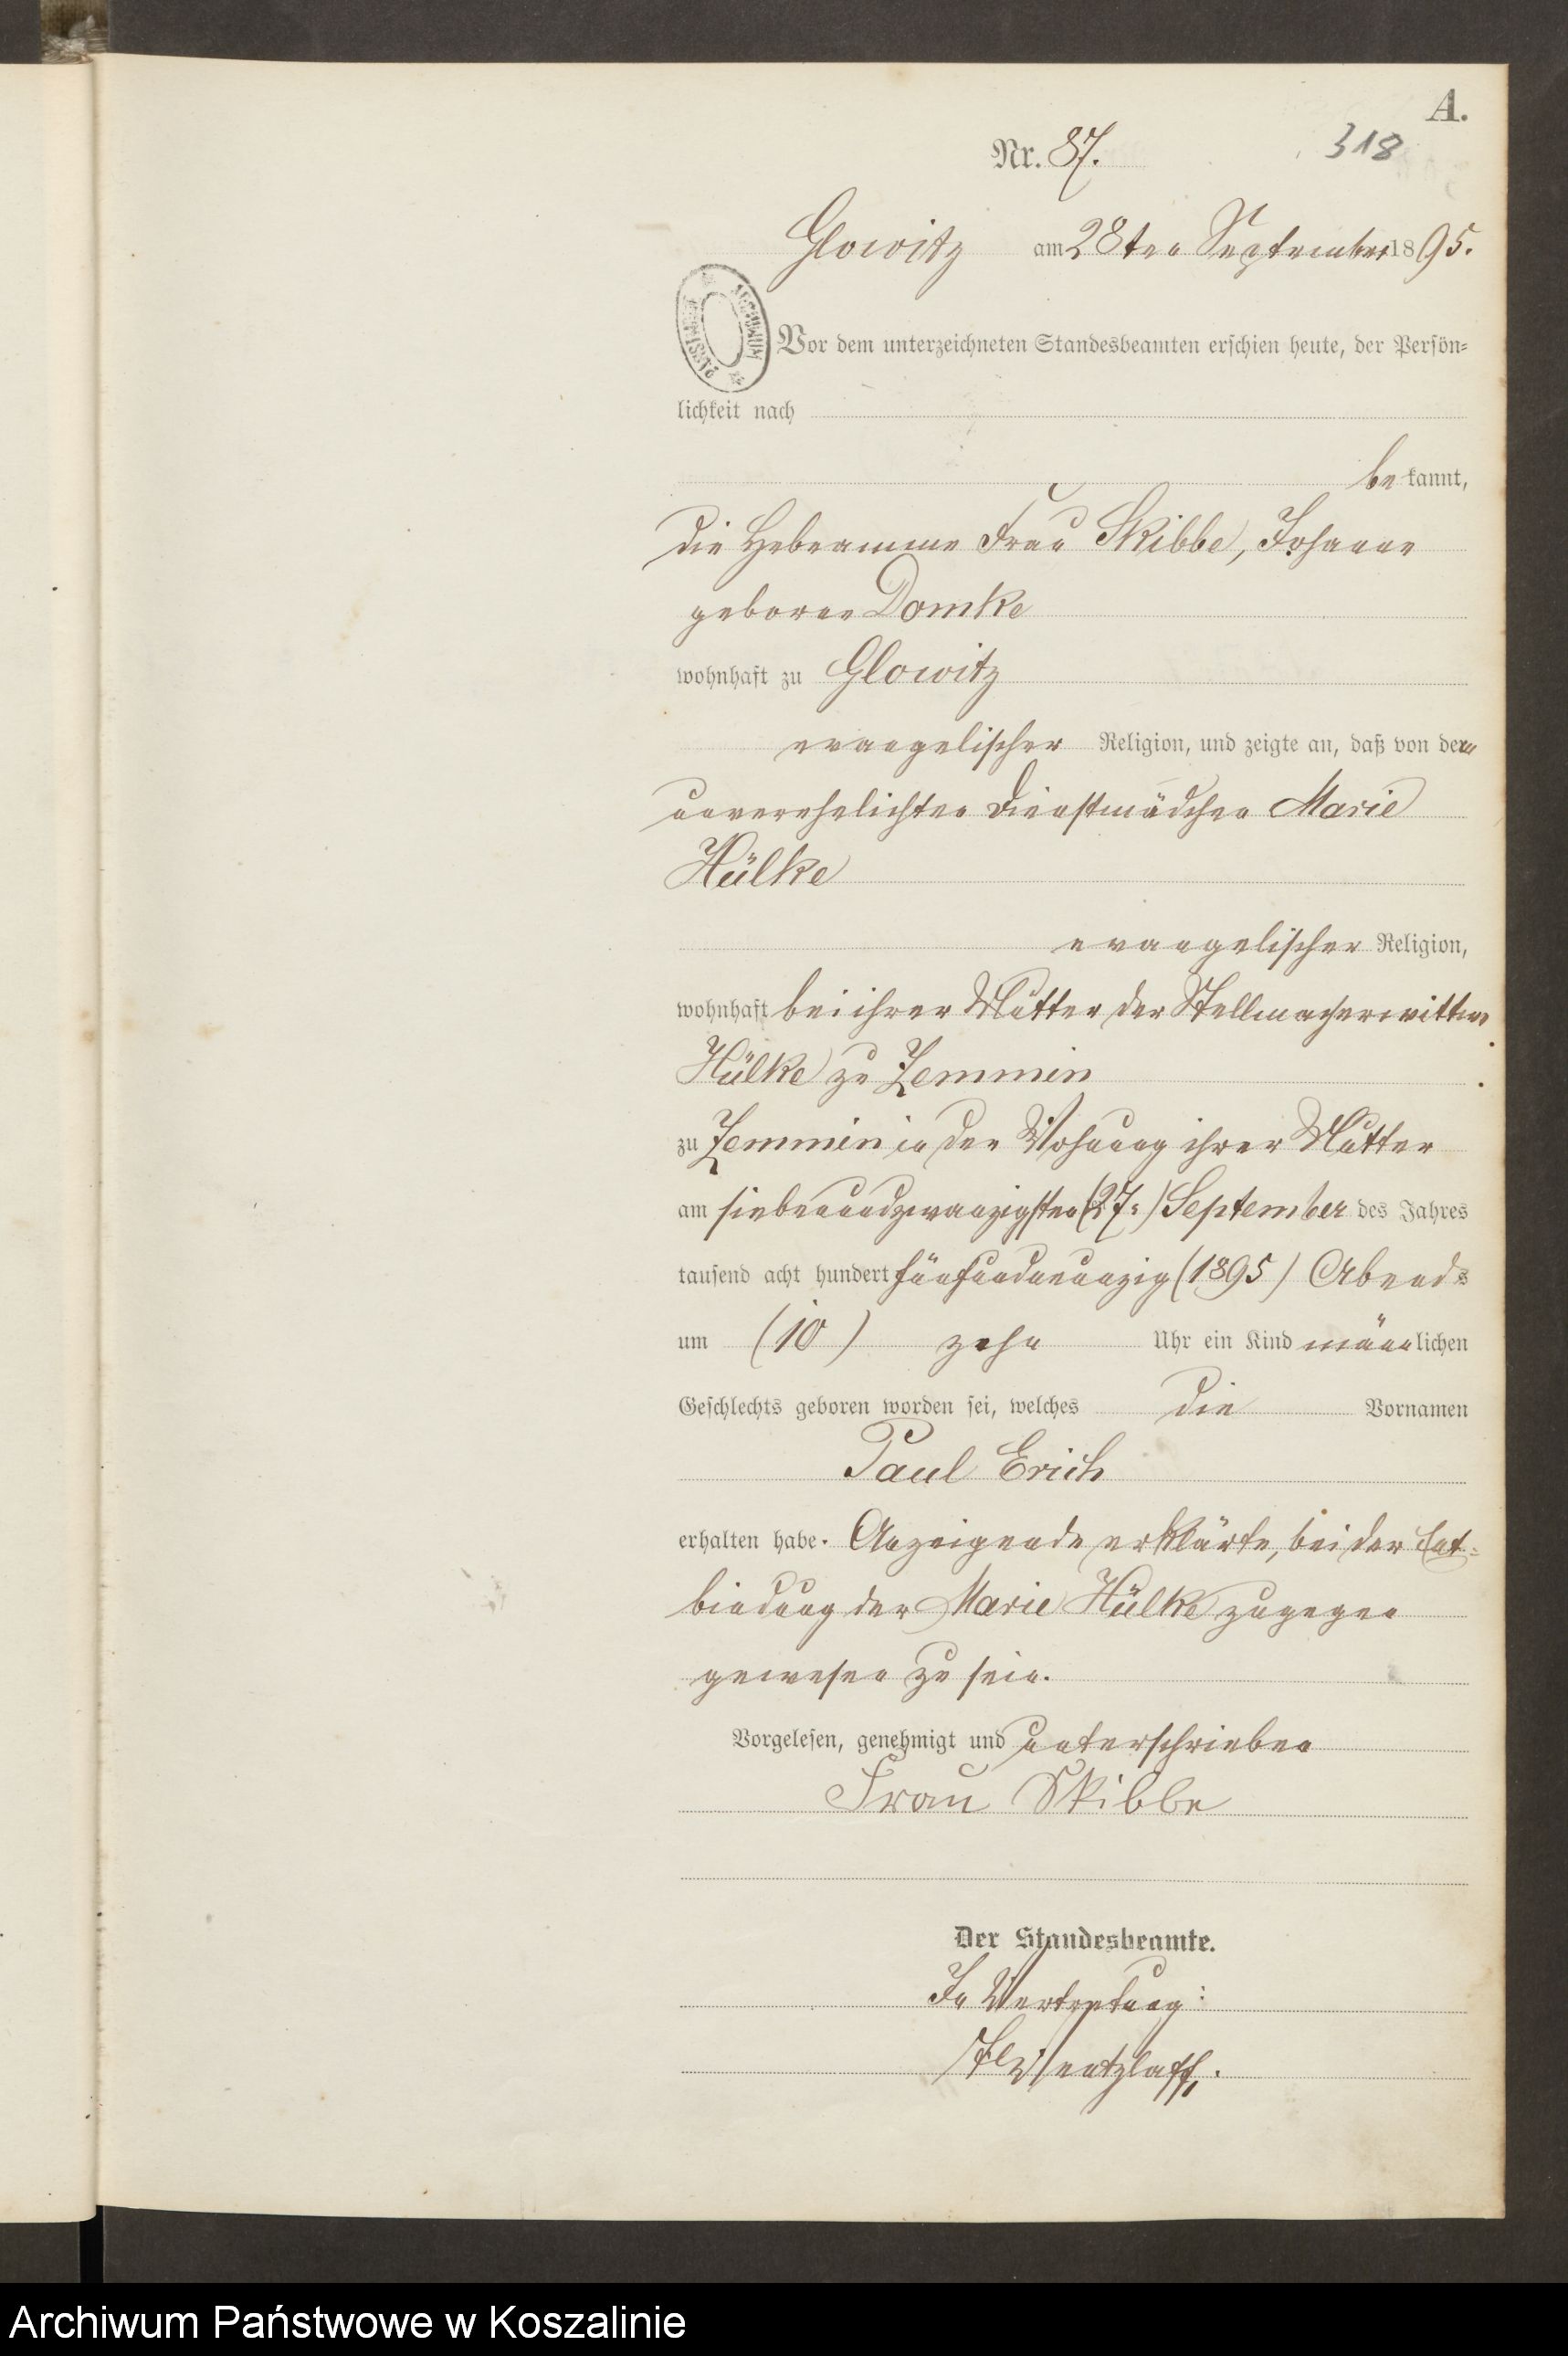 A.
Nr. 87.
318
Glowitz am 28ten September 1895.
Vor dem unterzeichneten Standesbeamten erschien heute, der Persön-
lichkeit nach
bekannt,
die Hebeamme Frau Skibbe, Johanne
geborne Domke
wohnhaft zu Glowitz
evangelischer Religion, und zeigte an, daß von dem
unverehelichten Dienstmädchen Marie
Hülke
evangelischer Religion,
wohnhaft bei ihrer Mutter der Stellmacherwittwe
Hülke zu Zemmin
zu Zemmin in der Wohnung ihrer Mutter
am siebenundzwanzigsten (27.) September des Jahres
tausend acht hundert fünfundneunzig (1895) Abends
um (10) zehn Uhr ein Kind männlichen
Geschlechts geboren worden sei, welches die Vornamen
Paul Erich
erhalten habe. Anzeigende erklärte, bei der Ent-
bindung der Marie Hülke zugegen
gewesen zu sein.
Vorgelesen, genehmigt und unterschrieben
Frau Skibbe
Der Standesbeamte.
In Vertretung:
Wentzlaff.
Archiwum Państwowe w Koszalinie